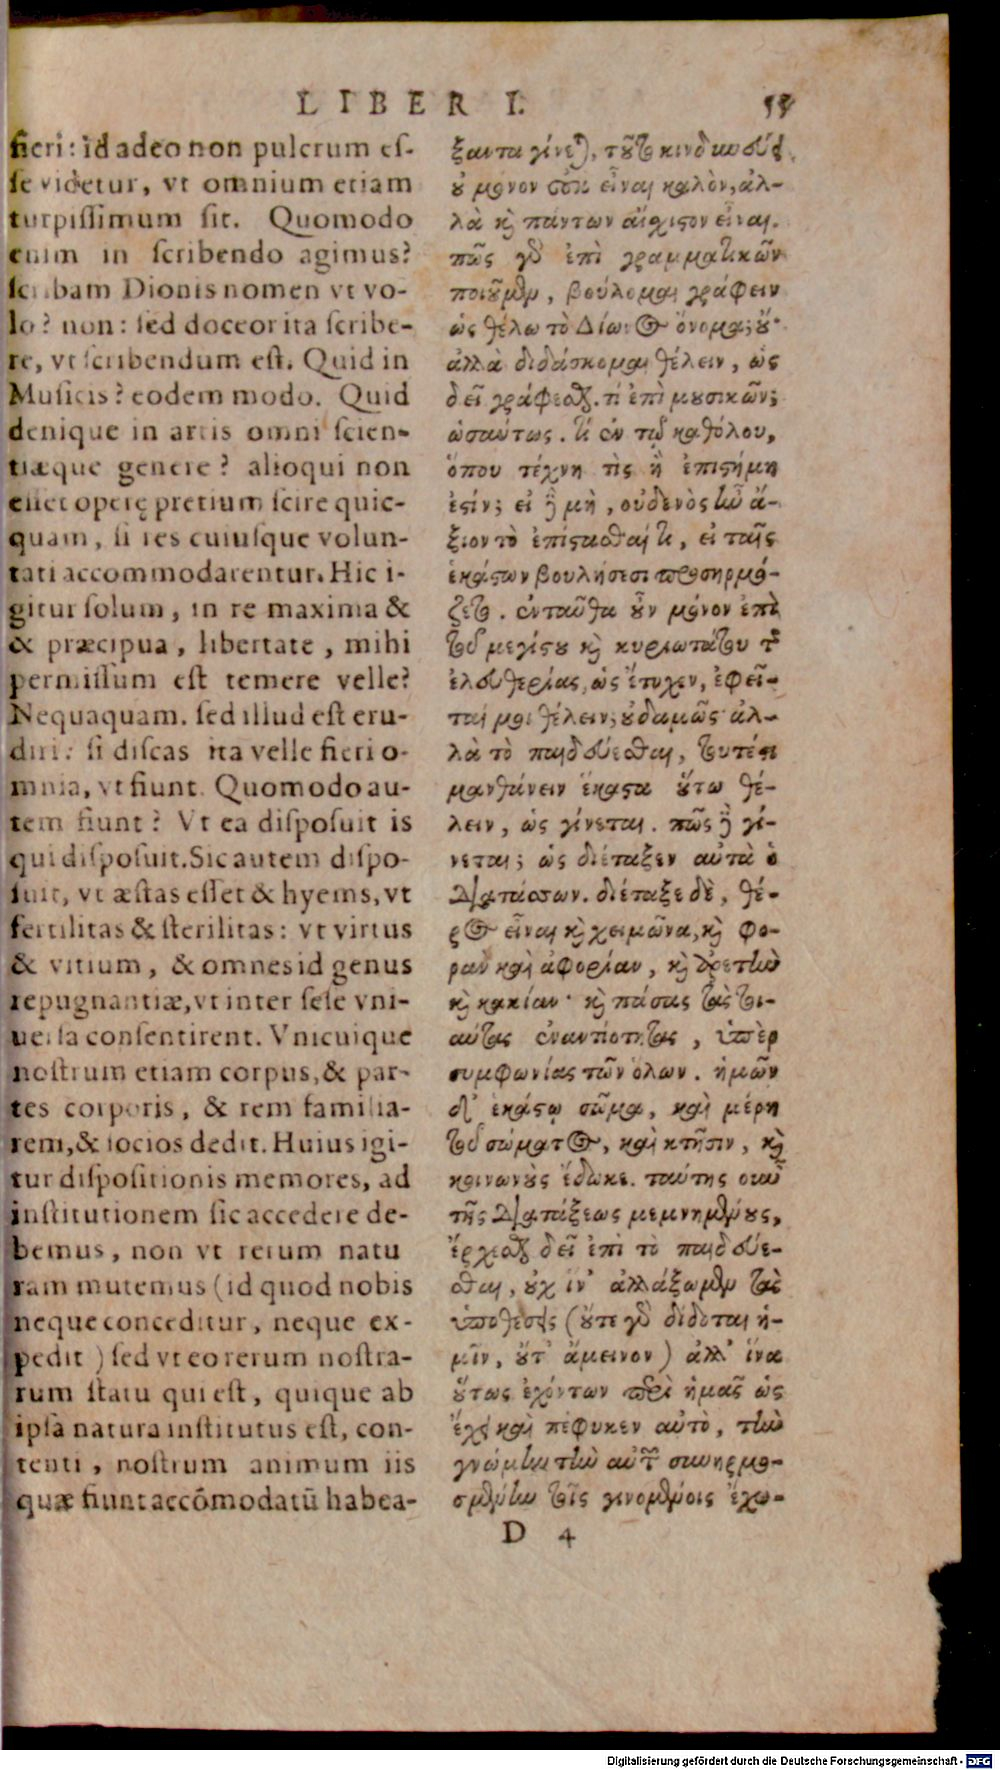 LIBER I.
55
fieri: id adeo non pulcrum es-
se videtur, vt omnium etiam
turpissimum sit. Quomodo
enim in scribendo agimus?
scribam Dionis nomen vt vo-
lo? non: sed doceor ita scribe-
re, vt scribendum est. Quid in
Musicis? eodem modo. Quid
denique in artis omni scien-
tiæque genere? alioqui non
esset operę pretium scire quic-
quam, si res cuiusque volun-
tati accommodarentur. Hic i-
gitur solum, in re maxima &
& præcipua, libertate, mihi
permissum est temere velle?
Nequaquam. sed illud est eru-
diri: si discas ita velle fieri o-
mnia, vt fiunt. Quomodo au-
tem fiunt? Vt ea disposuit is
qui disposuit. Sic autem dispo-
suit, vt æstas esset & hyems, vt
fertilitas & sterilitas: vt virtus
& vitium, & omnes id genus
repugnantiæ, vt inter sese vni-
uersa consentirent. Vnicuique
nostrum etiam corpus, & par-
tes corporis, & rem familia-
rem, & socios dedit. Huius igi-
tur dispositionis memores, ad
institutionem sic accedere de-
bemus, non vt rerum natu
ram mutemus (id quod nobis
neque conceditur, neque ex-
pedit) sed vt eo rerum nostra-
rum statu qui est, quique ab
ipsa natura institutus est, con-
tenti, nostrum animum iis
quæ fiunt accōmodatū habea-
ξαντα γίνεται, τοῦτο κινδυνεύει
οὐ μόνον οὐκ εἶναι καλὸν, ἀλ-
λὰ καὶ πάντων αἴχιστον εἶναι.
πῶς γὰρ ἐπὶ γραμματικῶν
ποιοῦμεν, βούλομαι γράφειν
ὡς θέλω τὸ Δίωνος ὄνομα; οὔ·
ἀλλὰ διδάσκομαι θέλειν, ὡς
δεῖ γράφεσθαι. τί ἐπὶ μουσικῶν;
ὡσαύτως. τί ἐν τῷ καθόλου,
ὅπου τέχνη τὶς ἢ ἐπιστήμη
ἐστίν; εἰ δὲ μὴ, οὐδενὸς ἦν ἄ-
ξιον τὸ ἐπίστασθαί τι, εἰ ταῖς
ἑκάστων βουλήσεσι προσηρμό-
ζετο. ἐνταῦθα οὖν μόνον ἐπὶ
τοῦ μεγίστου καὶ κυριωτάτου τῆς
ἐλευθερίας, ὡς ἔτυχεν, ἐφεῖ-
ταί μοι θέλειν; οὐδαμῶς· ἀλ-
λὰ τὸ παιδεύεσθαι, τουτέστι
μανθάνειν ἕκαστα οὕτω θέ-
λειν, ὡς γίνεται. πῶς δὲ γί-
νεται; ὡς διέταξεν αὐτὰ ὁ
διατάσσων. διέταξε δὲ, θέ-
ρος εἶναι καὶ χειμῶνα, καὶ φο-
ρὰν καὶ ἀφορίαν, καὶ ἀρετὴν
καὶ κακίαν· καὶ πάσας τὰς τοι-
αύτας ἐναντιότητας, ὑπὲρ
συμφωνίας τῶν ὅλων. ἡμῶν
δ' ἑκάστῳ σῶμα, καὶ μέρη
τοῦ σώματος, καὶ κτῆσιν, καὶ
κοινωνοὺς ἔδωκε. ταύτης οὖν
τῆς διατάξεως μεμνημένους,
ἔρχεσθαι δεῖ ἐπὶ τὸ παιδεύε-
σθαι, οὐχ ἵν' ἀλλάξωμεν τὰς
ὑποθέσεις (οὔτε γὰρ δίδοται ἡ-
μῖν, οὔτ' ἄμεινον) ἀλλ' ἵνα
οὕτως ἐχόντων περὶ ἡμᾶς ὡς
ἔχει καὶ πέφυκεν αὐτὸ, τὴν
γνώμην τὴν αὐτῶν συνηρμο-
σμένην τοῖς γινομένοις ἔχω-
D 4
Digitalisierung gefördert durch die Deutsche Forschungsgemeinschaft - DFG